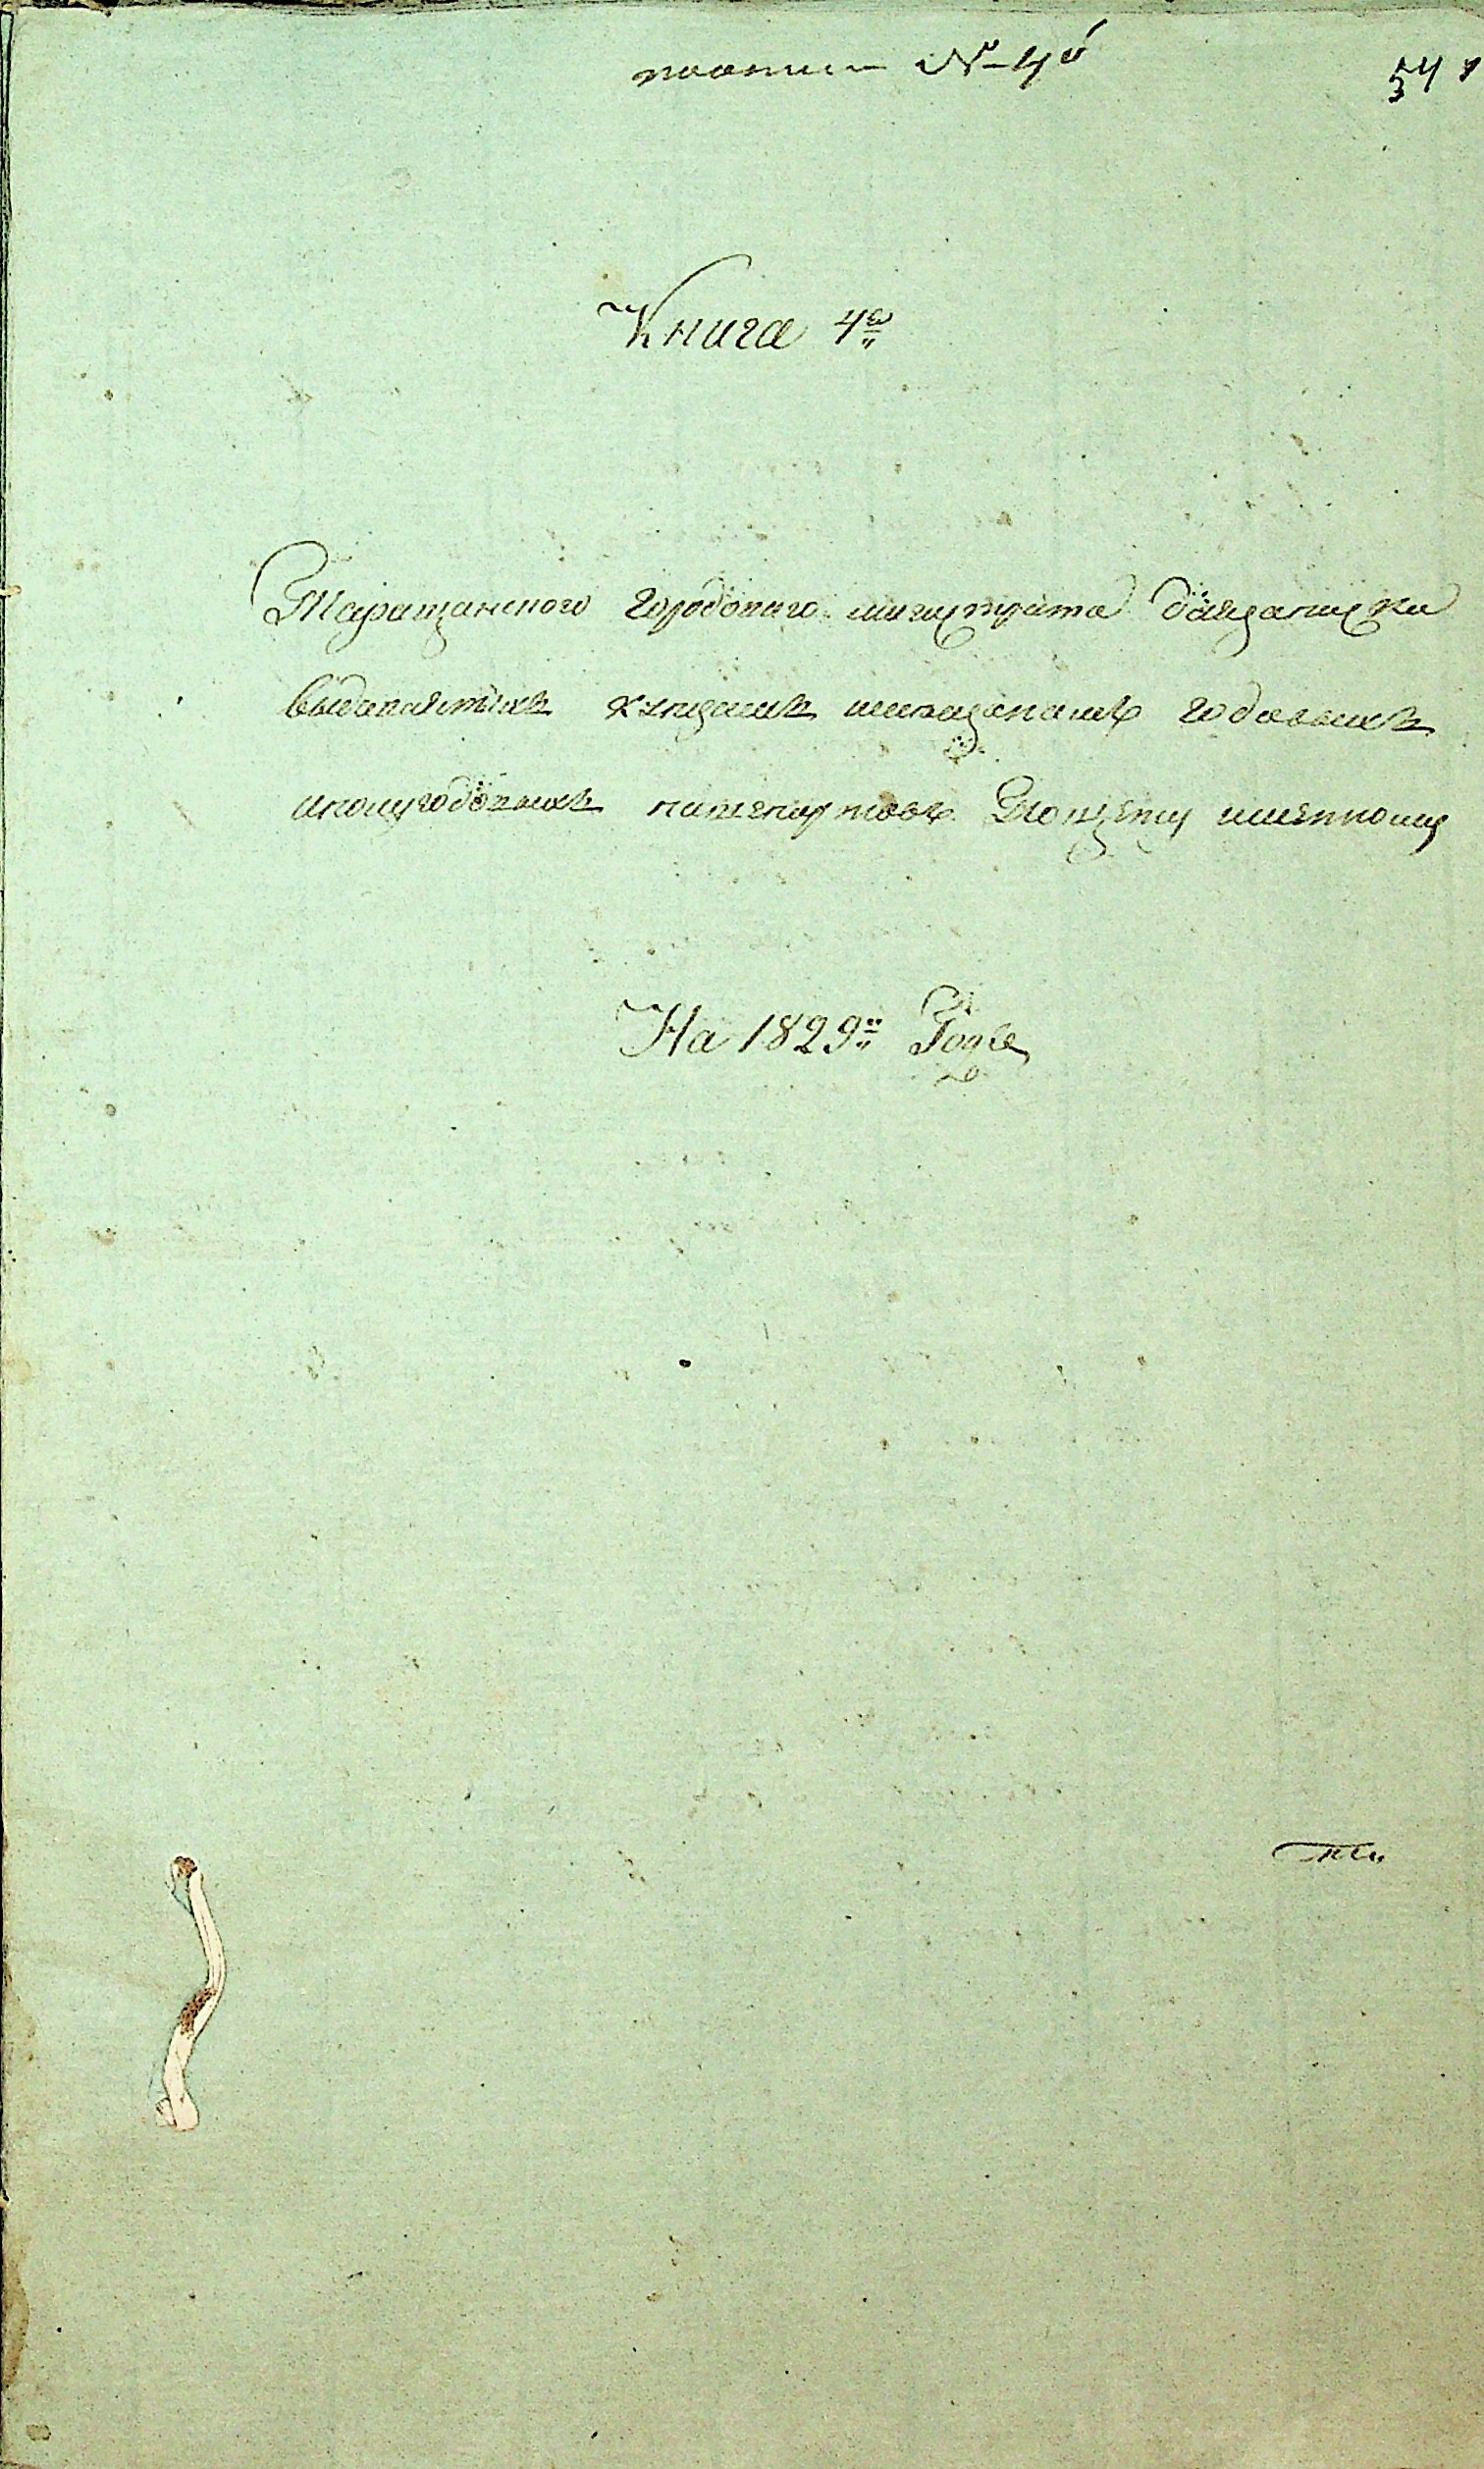 № 4й
54
Книга 4я
Таращанского городоваго магистрата для записки
выдаваемыхъ купцамъ мещанамъ годовыхъ
и полугодовыхъ
На 1829й Годъ